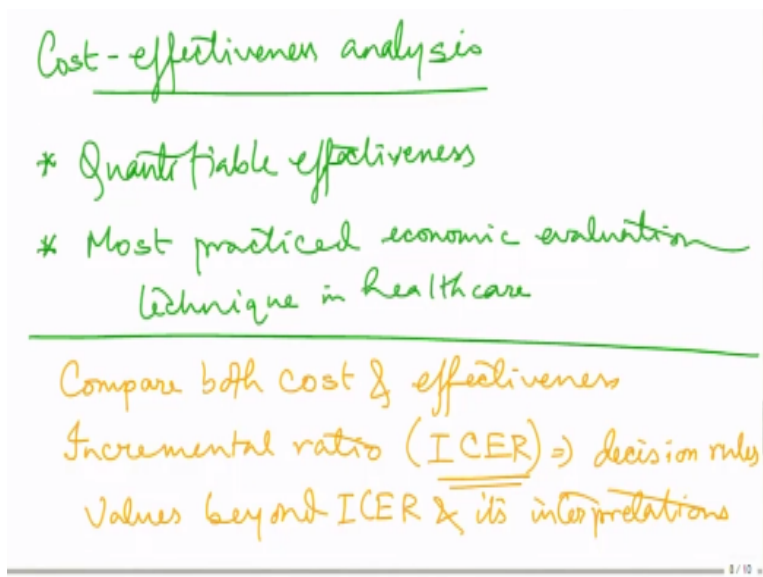 Cost-effectiveness analysis
* Quantifiable effectiveness
* Most practiced economic evaluation
technique in healthcare
Compare both cost & effectiveness
Incremental ratio (ICER) => decision rules
Values beyond ICER & its interpretations
8/10